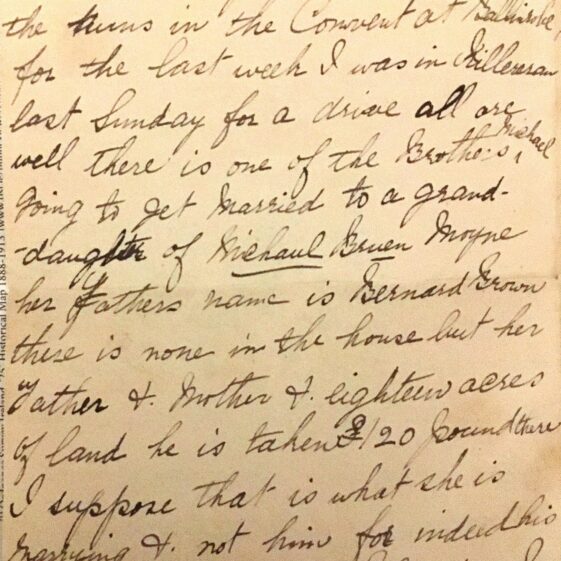 the nuns in the Convent at
for the last week I was in Killereran
last Sunday for a drive all are
well there is one of the Brothers, Michael
going to get Married to a grand-
-daughter of Michaul Bruen Moyne
her Fathers name is Bernard Brown
there is none in the house but her
Father &. Mother &. eighteen acres
of land he is taken £120 pound there
I suppose that is what she is
marrying &. not him for indeed his
Historical Map 1888-1913